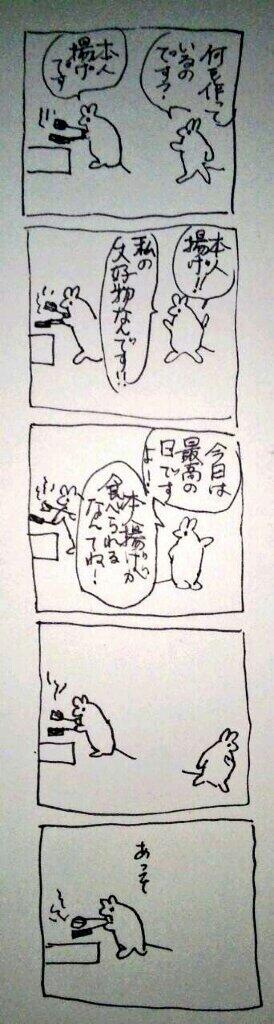 何を作って
いるの
です?
本人
揚げ
です
本人
揚げ!!
私の
大好物なんです!!
今日は
最高の
日です
よ!
本人揚げが
食べられる
なんてね!
あっそ